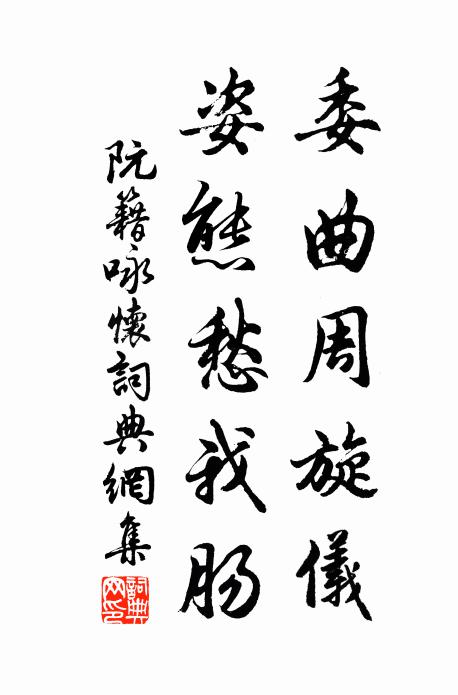 委曲周旋儀
姿態愁我腸
阮籍咏懷詞典網集
詞典網印